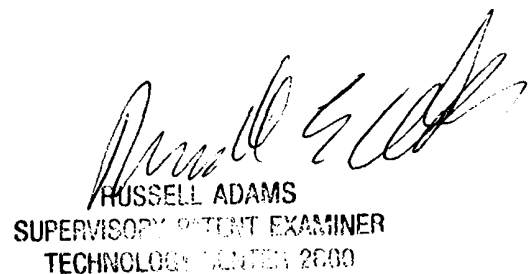 RUSSELL ADAMS
SUPERVISORY PATENT EXAMINER
TECHNOLOGY CENTER 2600